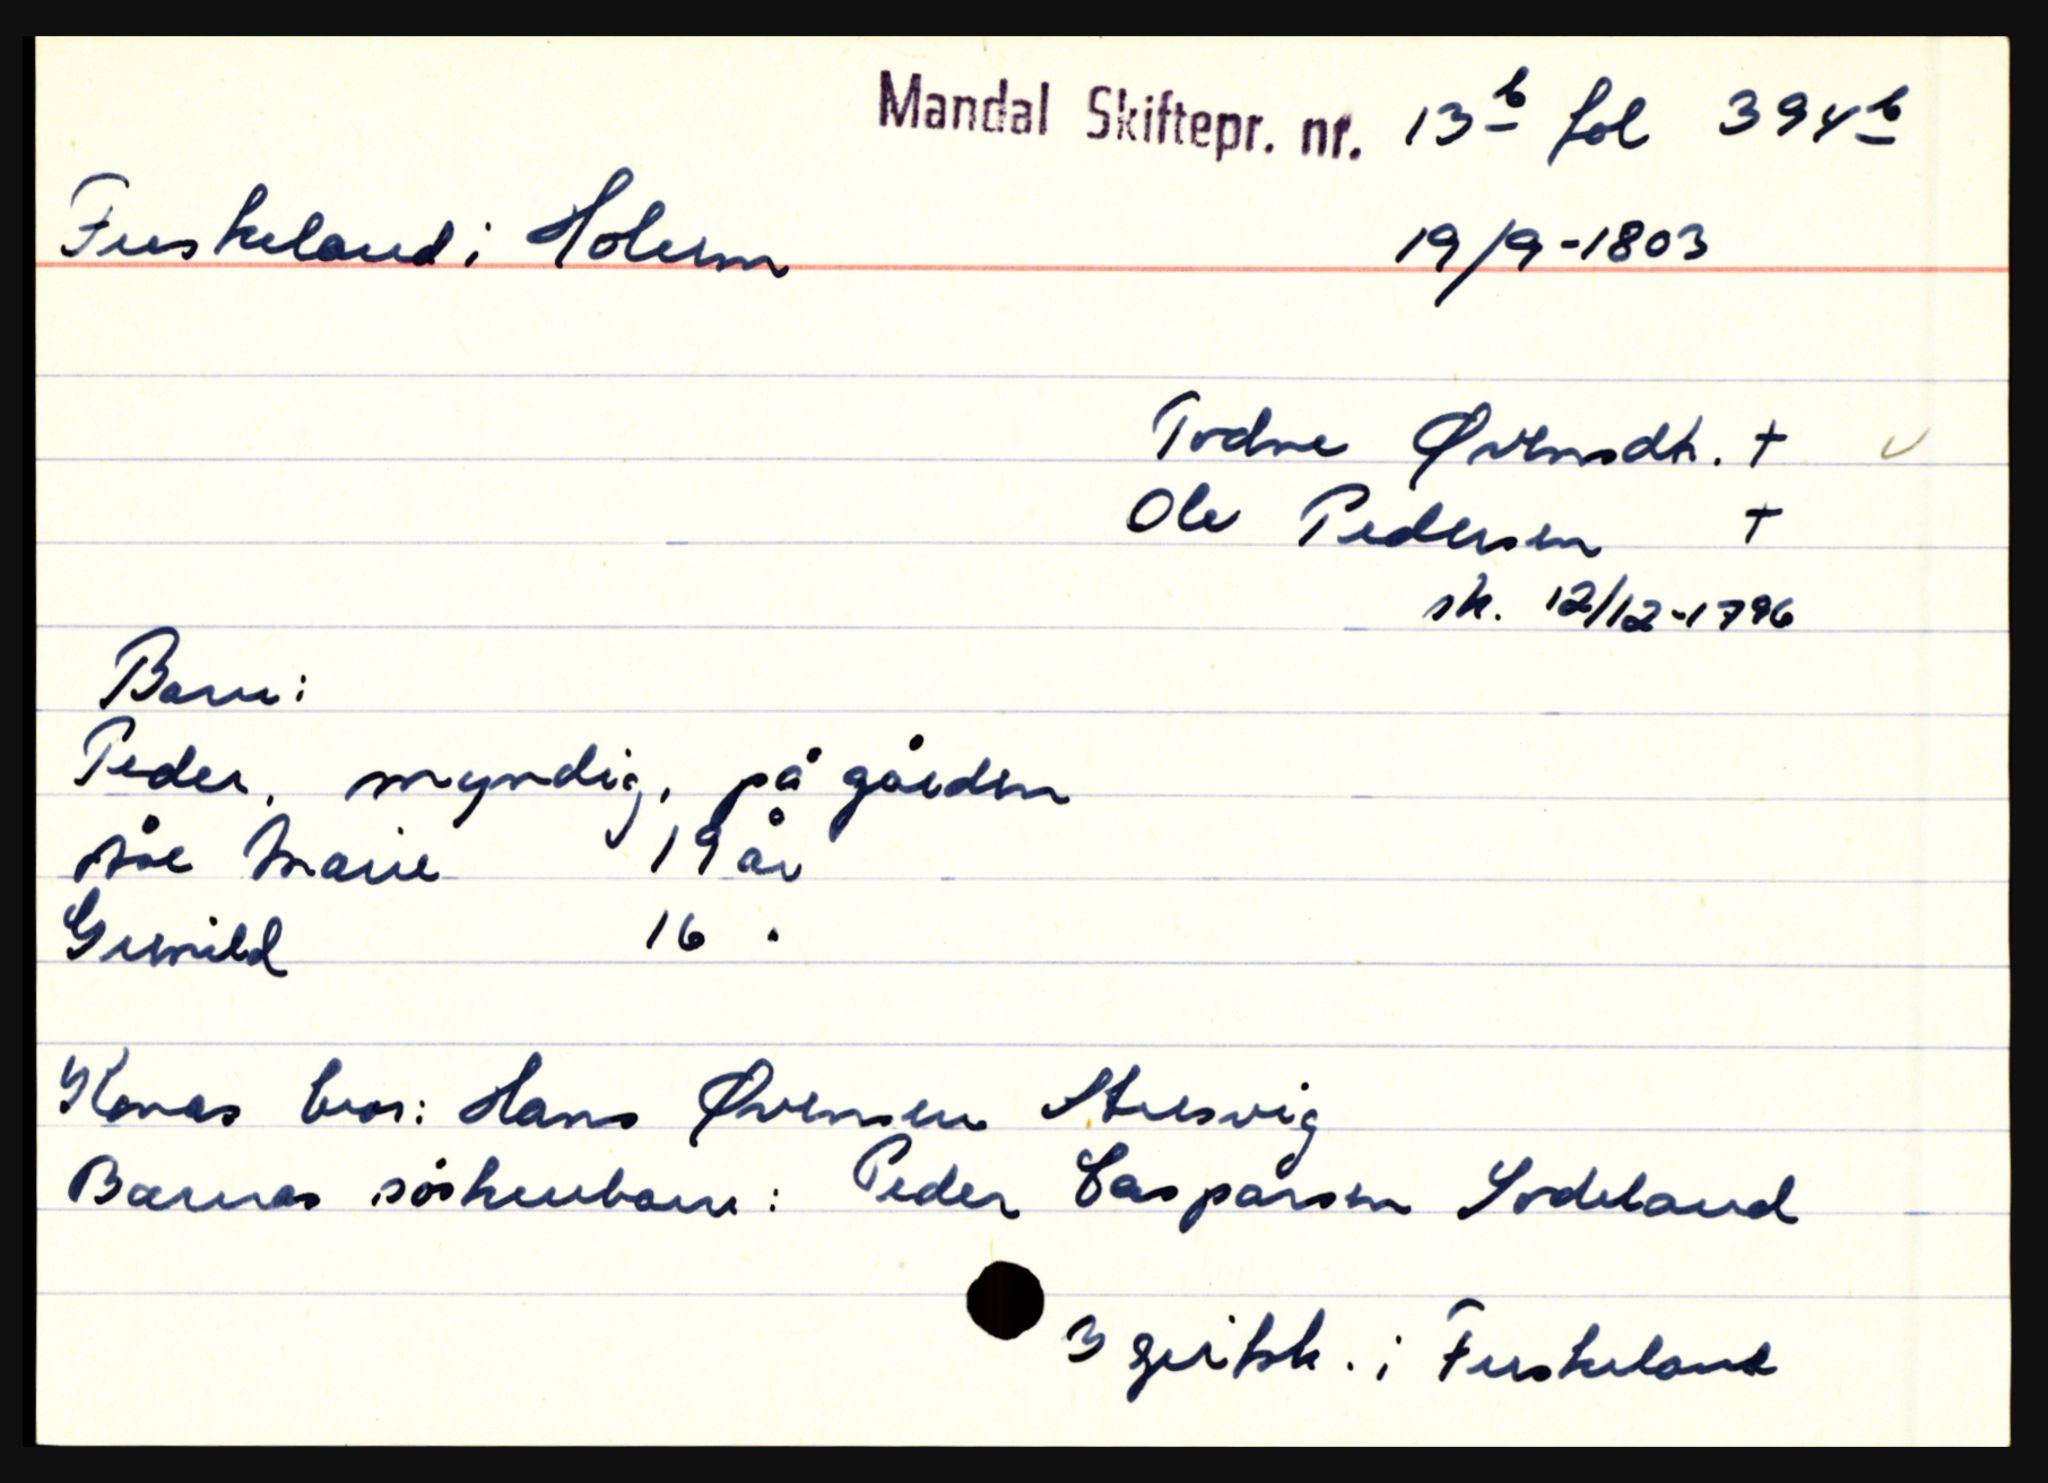 Mandal Skiftepr. nr. 13b fol 394b
Fuskeland i Holum 19/9-1803
Todne Øvensdt. †
Ole Pedersen †
sk. 12/12-1796
Barn:
Peder, myndig, på gården
Åse Marie 19 år
Gunild 16 "
Konas bror: Hans Øvensen Stusvig
Barnas söskenbarn: Peder Casparsen Sodeland
3 gurtsk. i Fuskeland